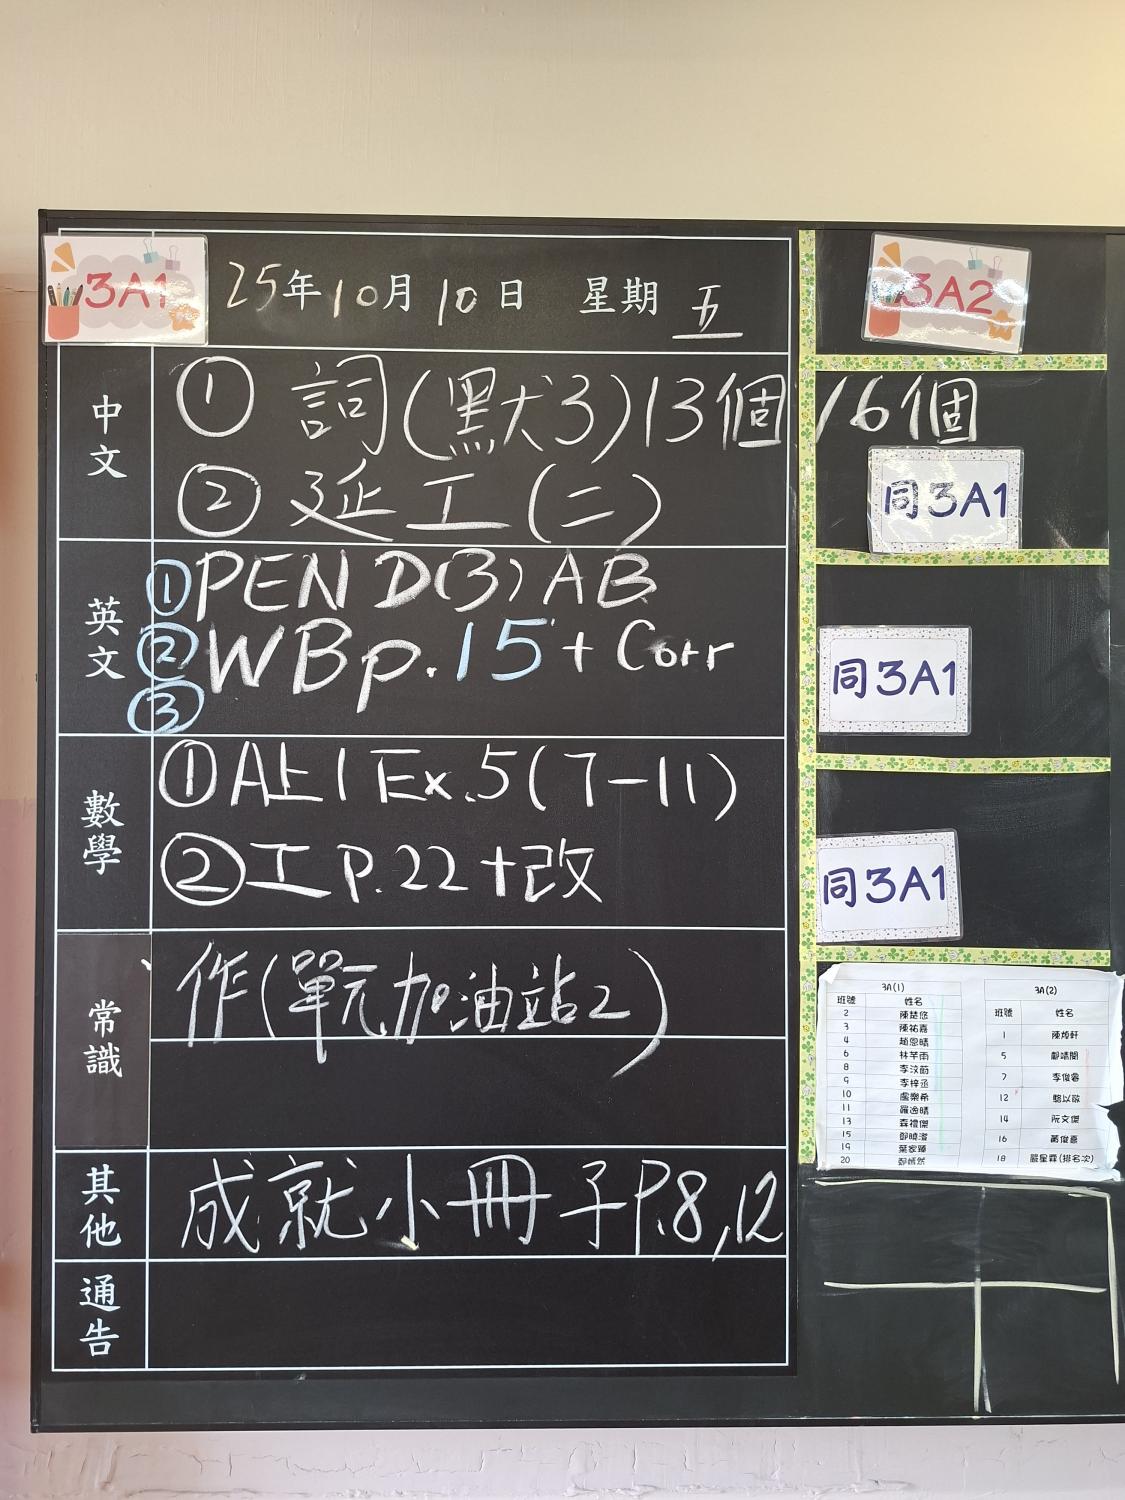 3A1
25年10月10日 星期五
3A2
中文
① 詞(默3)13個/16個
② 延工(二)
同3A1
英文
① PEN D(3) AB
② WB p.15 + Corr
③
同3A1
數學
① A上1 Ex.5(7-11)
② 工 P.22 + 改
同3A1
常識
作(單元加油站2)
其他
成就小冊子P.8,12
通告
3A(1)
班號 姓名
2 陳楚悠
3 陳祐嘉
4 趙恩晴
6 林芊雨
8
9 李梓丞
10 盧樂希
11 羅逸晴
13 森禮傑
15
19
20
3A(2)
班號 姓名
1
5
7 李俊睿
12 駱以敬
14 阮文傑
16 黃俊熹
18 嚴星霖(排名次)